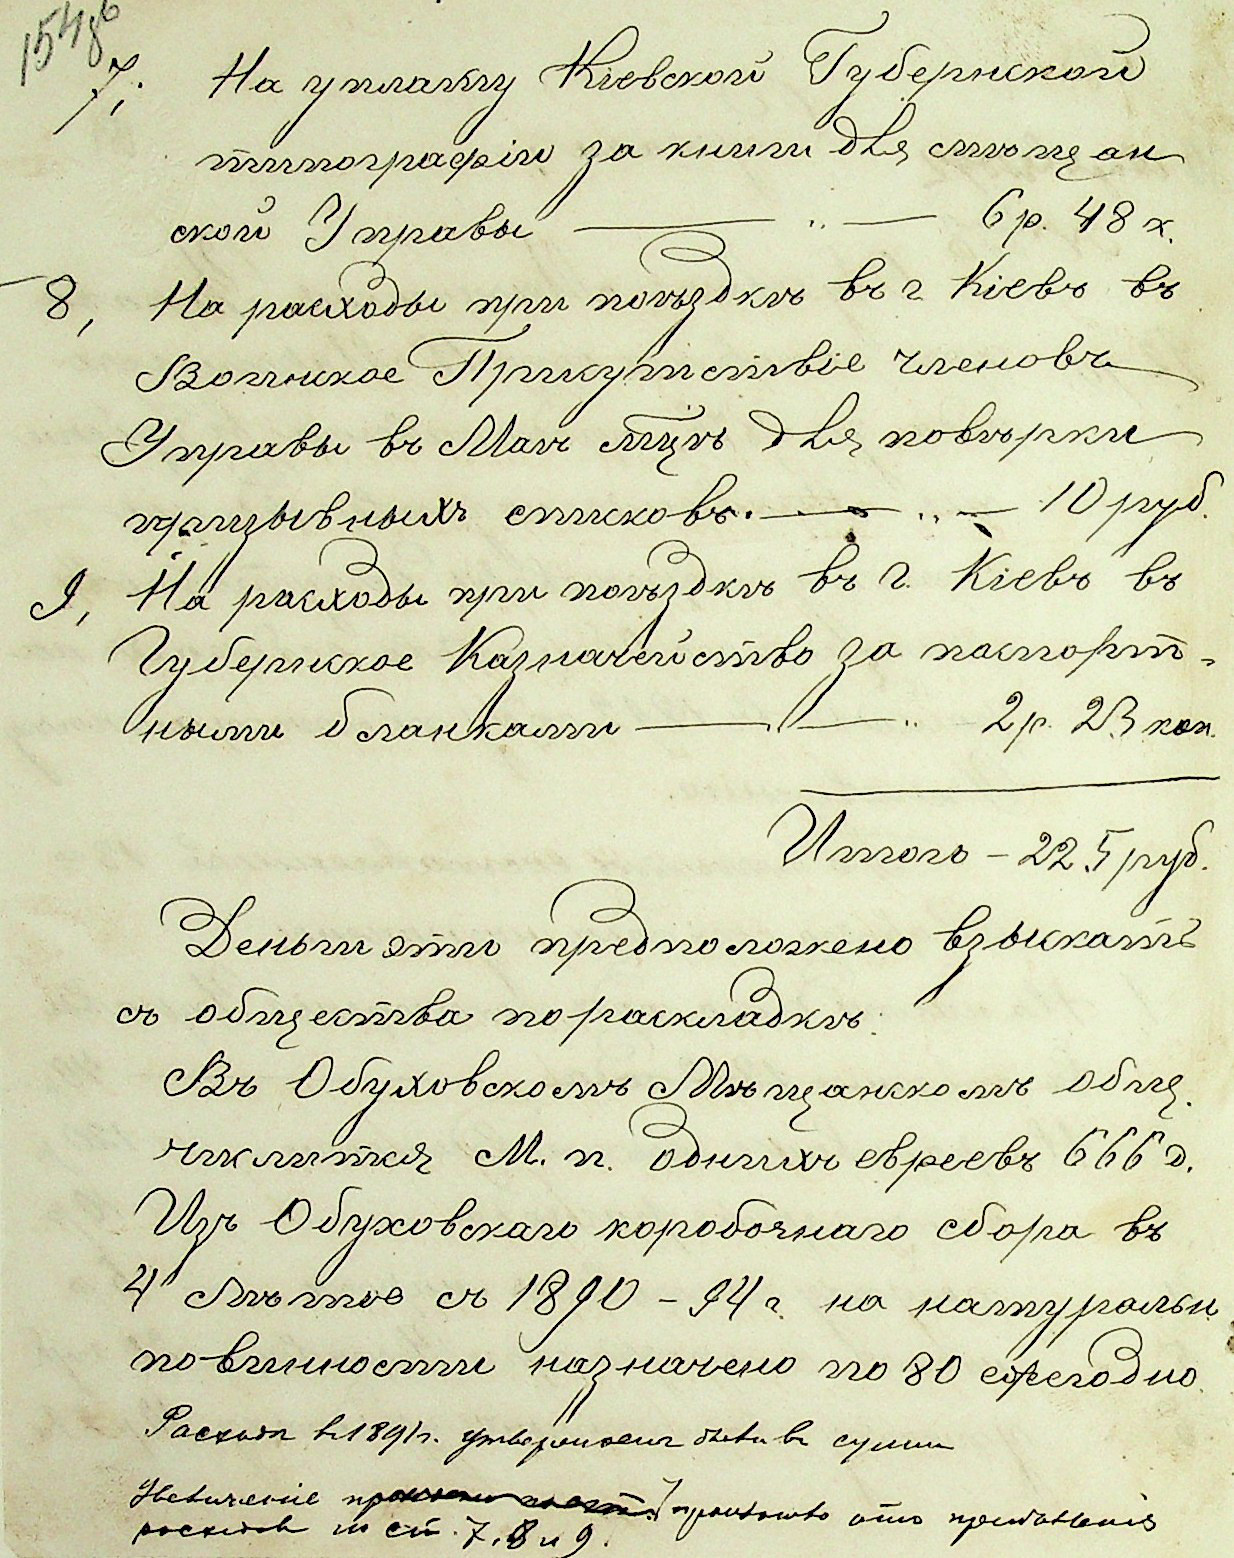 154 об
7, На уплату Кіевской Губернской
типографіи за книги для мѣщан
ской Управы — „ — 6 р. 48 к.
8, На расходы при поѣздкѣ въ г. Кіевъ въ
Воинское Присутствіе членовъ
Управы въ Маѣ м-цѣ для повѣрки
призывныхъ списковъ. — „ — 10 руб.
9, На расходы при поѣздкѣ въ г. Кіевъ въ
Губернское Казначейство за паспорт-
ными бланками — „ — 2 р. 23 коп.
Итого – 225 руб.
Деньги эти предположено взыскать
съ общества по раскладкѣ.
Въ Обуховскомъ Мѣщанскомъ общ.
числится М. п. однихъ евреевъ 666 д.
Изъ Обуховскаго коробочнаго сбора въ
4 лѣтіе съ 1890 – 94 г. на натуральн.
повинности назначено по 80 ежегодно
Расходъ въ 1891 г. утвержденъ былъ въ суммѣ
Увеличеніе произошло отъ прибавленія
расходовъ по ст. 7, 8 и 9.